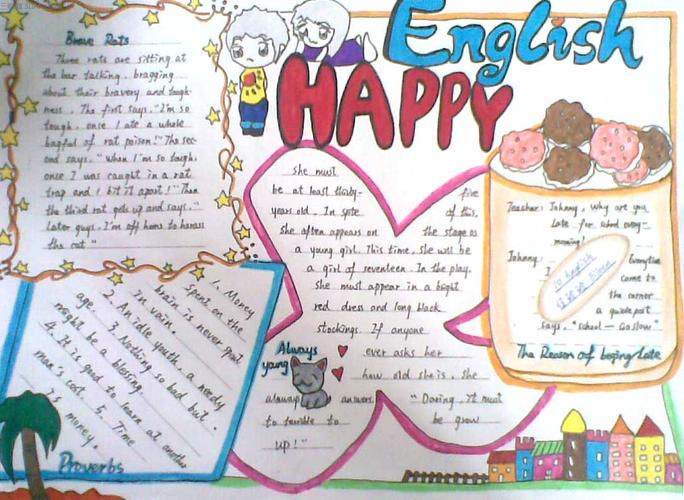 English
HAPPY
Brave Rats
Three rats are sitting at
the bar talking, bragging
about their bravery and tough-
ness. The first says, "I'm so
tough, once I ate a whole
bagful of rat poison!" The sec-
ond says, "When I'm so tough,
once I was caught in a rat
trap and I bit it apart!" Then
the third rat gets up and says,"
Later guys, I'm off home to harass
the cat."
She must
be at least thirty-five
years old. In spite of this,
She often appears on the stage as
a young girl. This time, She will be
a girl of seventeen. In the play,
She must appear in a bright
red dress and long black
stockings. If anyone
ever asks her
how old she is, She
always answers, "Daring, it must
be terrible to be grow
up!"
Always
yang
Teacher: Johnny, Why are you
late for school every-
morning?
Johnny: Everytime
I come to
the corner
a guidepost
says, "School — Go Slow"
The Reason of beging Late
In English
1. Money
spent on the
brain is never spent
in vain.
2. An idle youth, a needy
age.
3. Nothing so bad but
might be a blessing.
4. It is good to learn at another
man's cost. 5. Time
is money.
Proverbs